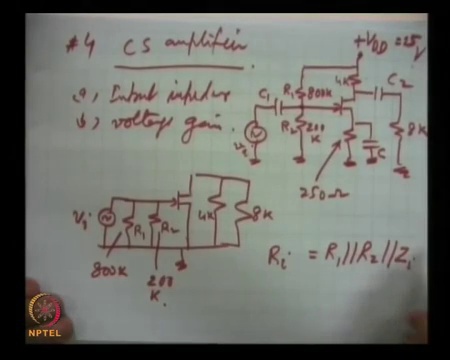 #4 CS amplifier
a, Input impedance
b, voltage gain.
+VDD = 25V
4K
R1 800K
C1
C2
R2 200 K
8K
C
Vi
250Ω
Vi
R1
R2
4K
8K
800K
200 K.
Ri = R1 || R2 || Zi
NPTEL